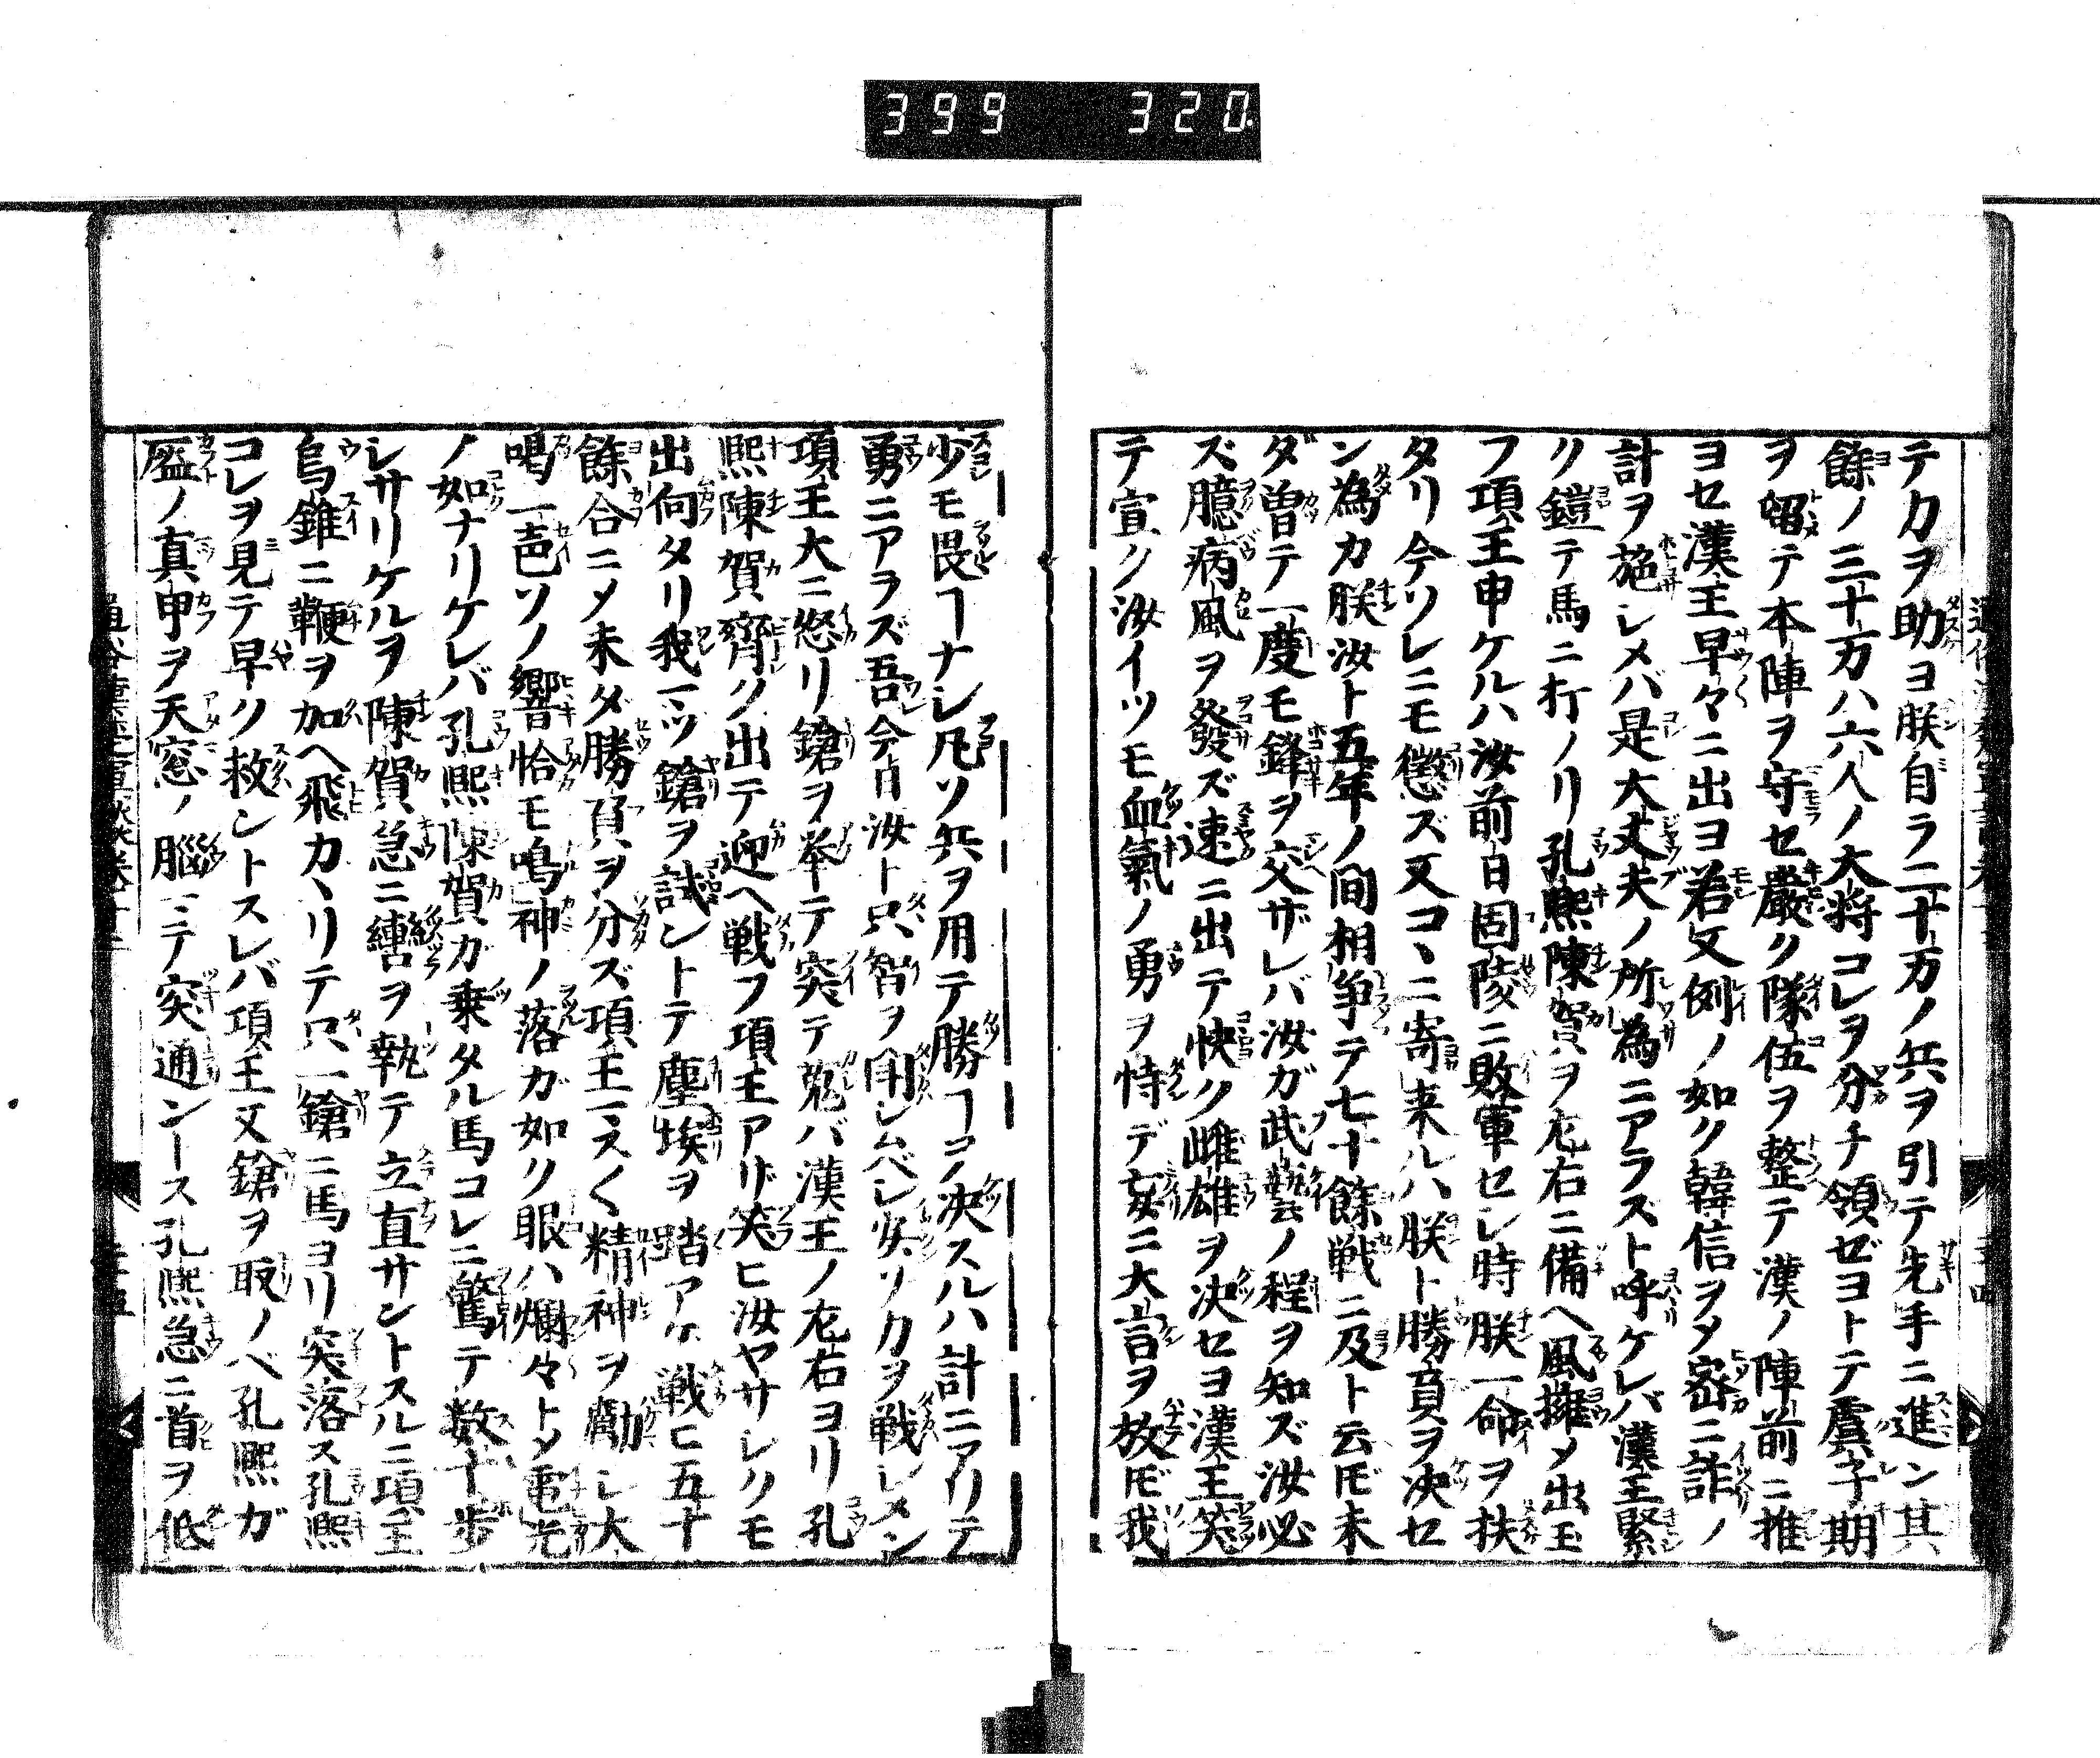 399 320
テ力ヲ助ヨ朕自ラ二十万ノ兵ヲ引テ先手ニ進ン其
餘ノ三十万ハ六人ノ大将コレヲ分チ領ゼヨトテ虞子期
ヲ留テ本陣ヲ守セ嚴ク隊伍ヲ整テ漢ノ陣前ニ推
ヨセ漢王早々ニ出ヨ若又例ノ如ク韓信ヲメ密ニ詐ノ
計ヲ施シメバ是大丈夫ノ所為ニアラスト呼ケレバ漢王緊
ク鎧テ馬ニ打ノリ孔熙陳賀ヲ左右ニ備ヘ風擁メ出玉
フ項王申ケルハ汝前日固陵ニ敗軍セシ時朕一命ヲ扶
タリ今ソレニモ懲ズ又コヽニ寄来ルハ朕ト勝負ヲ决セ
ン為カ朕汝ト五年ノ間相争テ七十餘戦ニ及ト云𪜈未
ダ曽テ一度モ鋒ヲ交ザレバ汝ガ武藝ノ程ヲ知ズ汝必
ズ臆病風ヲ發ズ速ニ出テ快ク雌雄ヲ决セヨ漢王笑
テ宣ク汝イツモ血氣ノ勇ヲ恃デ妄ニ大言ヲ放𪜈我
少モ畏ヿナシ凡ソ兵ヲ用テ勝ヿヲ决スルハ計ニアリテ
勇ニアラズ吾今日汝ト只智ヲ闘シムベシ安ソ力ヲ戦シメン
項王大ニ怒リ鎗ヲ挙テ突テ蒐バ漢王ノ左右ヨリ孔
熙陳賀齊ク出テ迎ヘ戦フ項王アザ笑ヒ汝ヤサシクモ
出向タリ我一ツ鎗ヲ試ントテ塵埃ヲ踏アケ戦ヒ五十
餘合ニメ未ダ勝負ヲ分ズ項王精神ヲ勵シ大
喝一声ソノ響恰モ鳴神ノ落ガ如ク眼ハ爛々トメ電光
ノ如ナリケレバ孔熙陳賀ガ乗タル馬コレニ驚テ数十歩
シサリケルヲ陳賀急ニ轡ヲ執テ立直サントスルニ項王
烏錐ニ鞭ヲ加ヘ飛カヽリテ只一鎗ニ馬ヨリ突落ス孔熙
コレヲ見テ早ク救ントスレバ項王又鎗ヲ取ノベ孔熙ガ
盔ノ真甲ヲ天窓ノ脳ニテ突通ントス孔熙急ニ首ヲ低